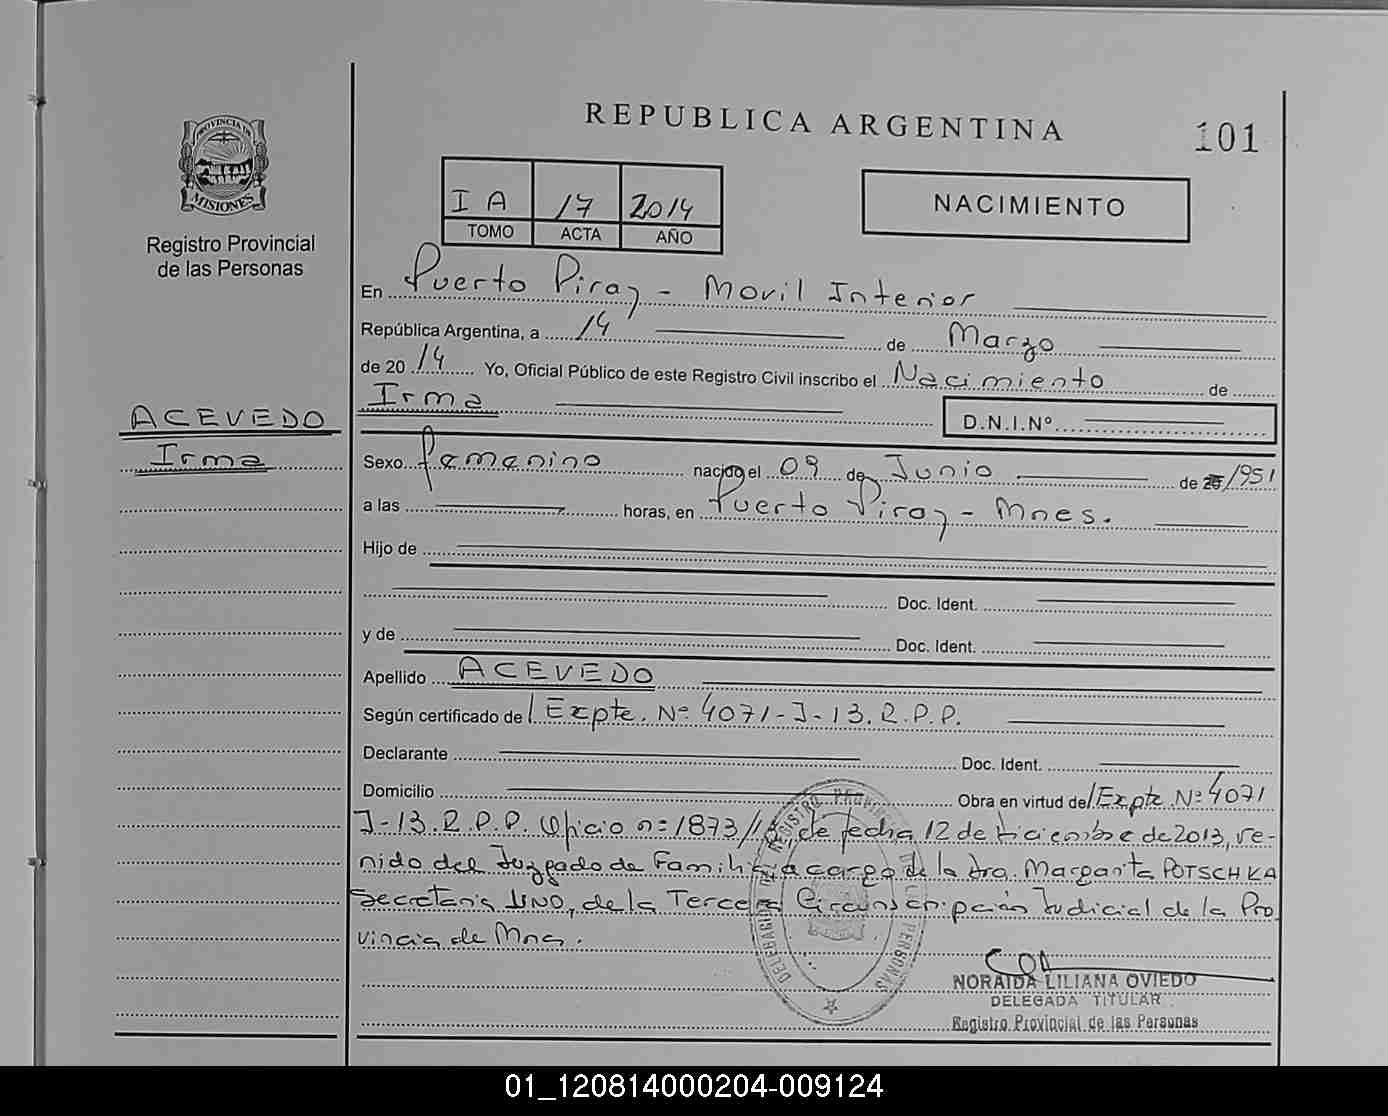 REPUBLICA ARGENTINA
101
PROVINCIA DE
MISIONES
Registro Provincial
de las Personas
I A 17 2014
TOMO ACTA AÑO
NACIMIENTO
En Puerto Piray - Movil Interior
República Argentina, a 14 de Marzo
de 20 14 Yo, Oficial Público de este Registro Civil inscribo el Nacimiento de
Irma D.N.I.Nº
ACEVEDO
Irma
Sexo femenino nacido el 09 de Junio de 20 1951
a las horas, en Puerto Piray - Mnes.
Hijo de
Doc. Ident.
y de Doc. Ident.
Apellido ACEVEDO
Según certificado de Expte. Nº 4071-J-13.R.P.P.
Declarante Doc. Ident.
Domicilio Obra en virtud de Expte. Nº 4071
J-13.R.P.P. Oficio nº 1873/13, de fecha 12 de Diciembre de 2013, ve-
nido del Juzgado de Familia a cargo de la Dra. Margarita POTSCHKA
Secretaria UNO, de la Tercera Circunscripción Judicial de la Pro
vincia de Mnes.
DELEGACION DEL REGISTRO PROVINCIAL DE LAS PERSONAS
NORAIDA LILIANA OVIEDO
DELEGADA TITULAR
Registro Provincial de las Personas
01_120814000204-009124